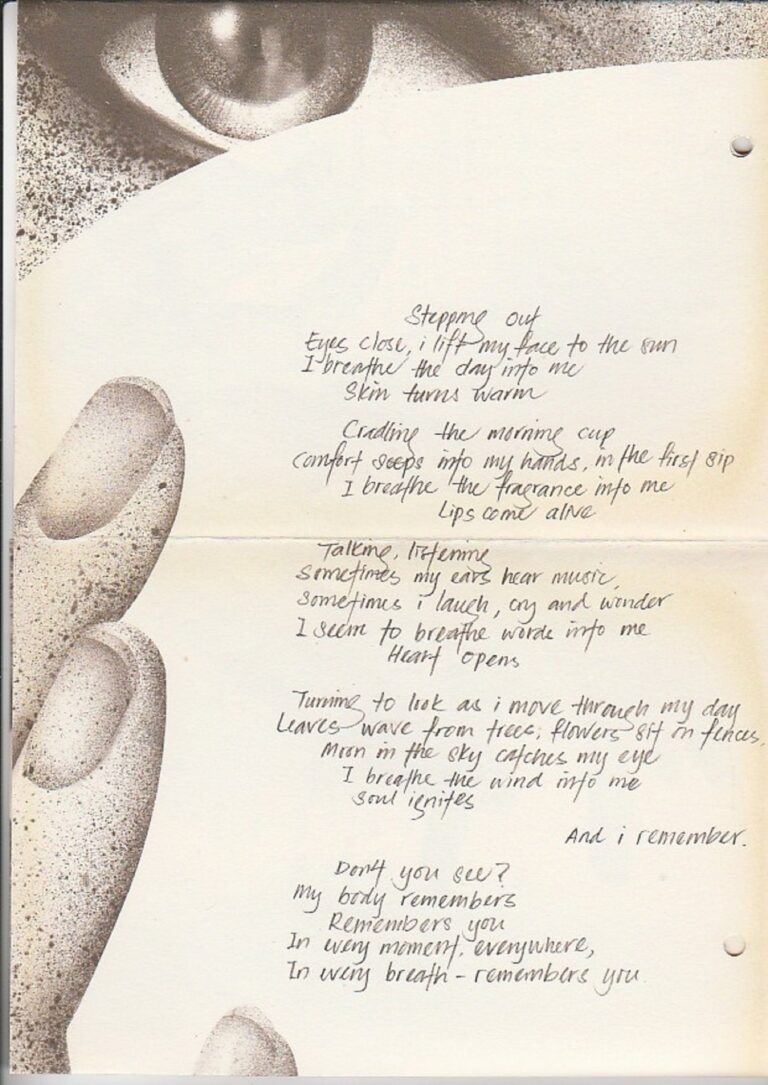 Stepping out
Eyes close, i lift my face to the sun
I breathe the day into me
Skin turns warm
Cradling the morning cup
comfort seeps into my hands, in the first sip
I breathe the fragrance into me
Lips come alive
Talking, listening
Sometimes my ears hear music,
Sometimes i laugh, cry and wonder
I seem to breathe words into me
Heart opens
Turning to look as i move through my day
Leaves wave from trees, flowers sit on fences,
Moon in the sky catches my eye
I breathe the wind into me
Soul ignites
And i remember.
Don't you see?
My body remembers
Remembers you
In every moment, everywhere,
In every breath - remembers you